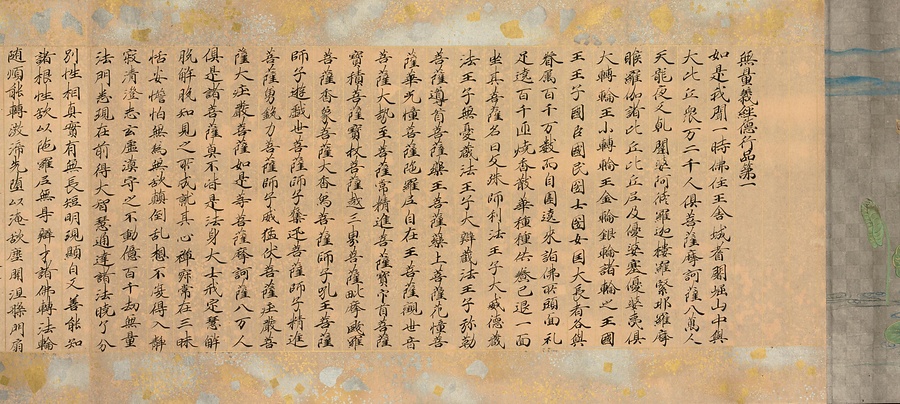 無量義經德行品第一
如是我聞一時佛住王舍城耆闍崛山中與
大比丘眾万二千人俱菩薩摩訶薩八萬人
天龍夜叉乹闥婆阿修羅迦樓羅緊那羅摩
睺羅伽諸比丘比丘尼及優婆塞優婆夷俱
大轉輪王小轉輪王金輪銀輪諸輪之王國
王王子國臣國民國士國女國大長者各與
眷属百千万數而自圍遶来詣佛所頭面礼
足遶百千迊燒香散華種種供養已退一面
坐其菩薩名曰文殊師利法王子大威德藏
法王子無憂藏法王子大辯藏法王子弥勒
菩薩導首菩薩藥王菩薩藥上菩薩花幢菩
薩華光幢菩薩陀羅尼自在王菩薩觀世音
菩薩大勢至菩薩常精進菩薩寶印首菩薩
寶積菩薩寶杖菩薩越三界菩薩毗摩颰羅
菩薩香象菩薩大香象菩薩師子吼王菩薩
師子遊戲世菩薩師子奮迅菩薩師子精進
菩薩勇銳力菩薩師子威猛伏菩薩疰嚴菩
薩大疰嚴菩薩如是等菩薩摩訶薩八万人
俱是諸菩薩莫不皆是法身大士戒定慧解
脱解脱知見之所成就其心禪寂常在三昧
恬安憺怕無為無欲顛倒乱想不復得入靜
寂清澄志玄虛漠守之不動億百千劫無量
法門悉現在前得大智慧通達諸法曉了分
別性相真實有無長短明現顯白又善能知
諸根性欲以陀羅尼無㝵辯才諸佛轉法輪
随順能轉渧先墮以淹欲塵開涅槃門扇